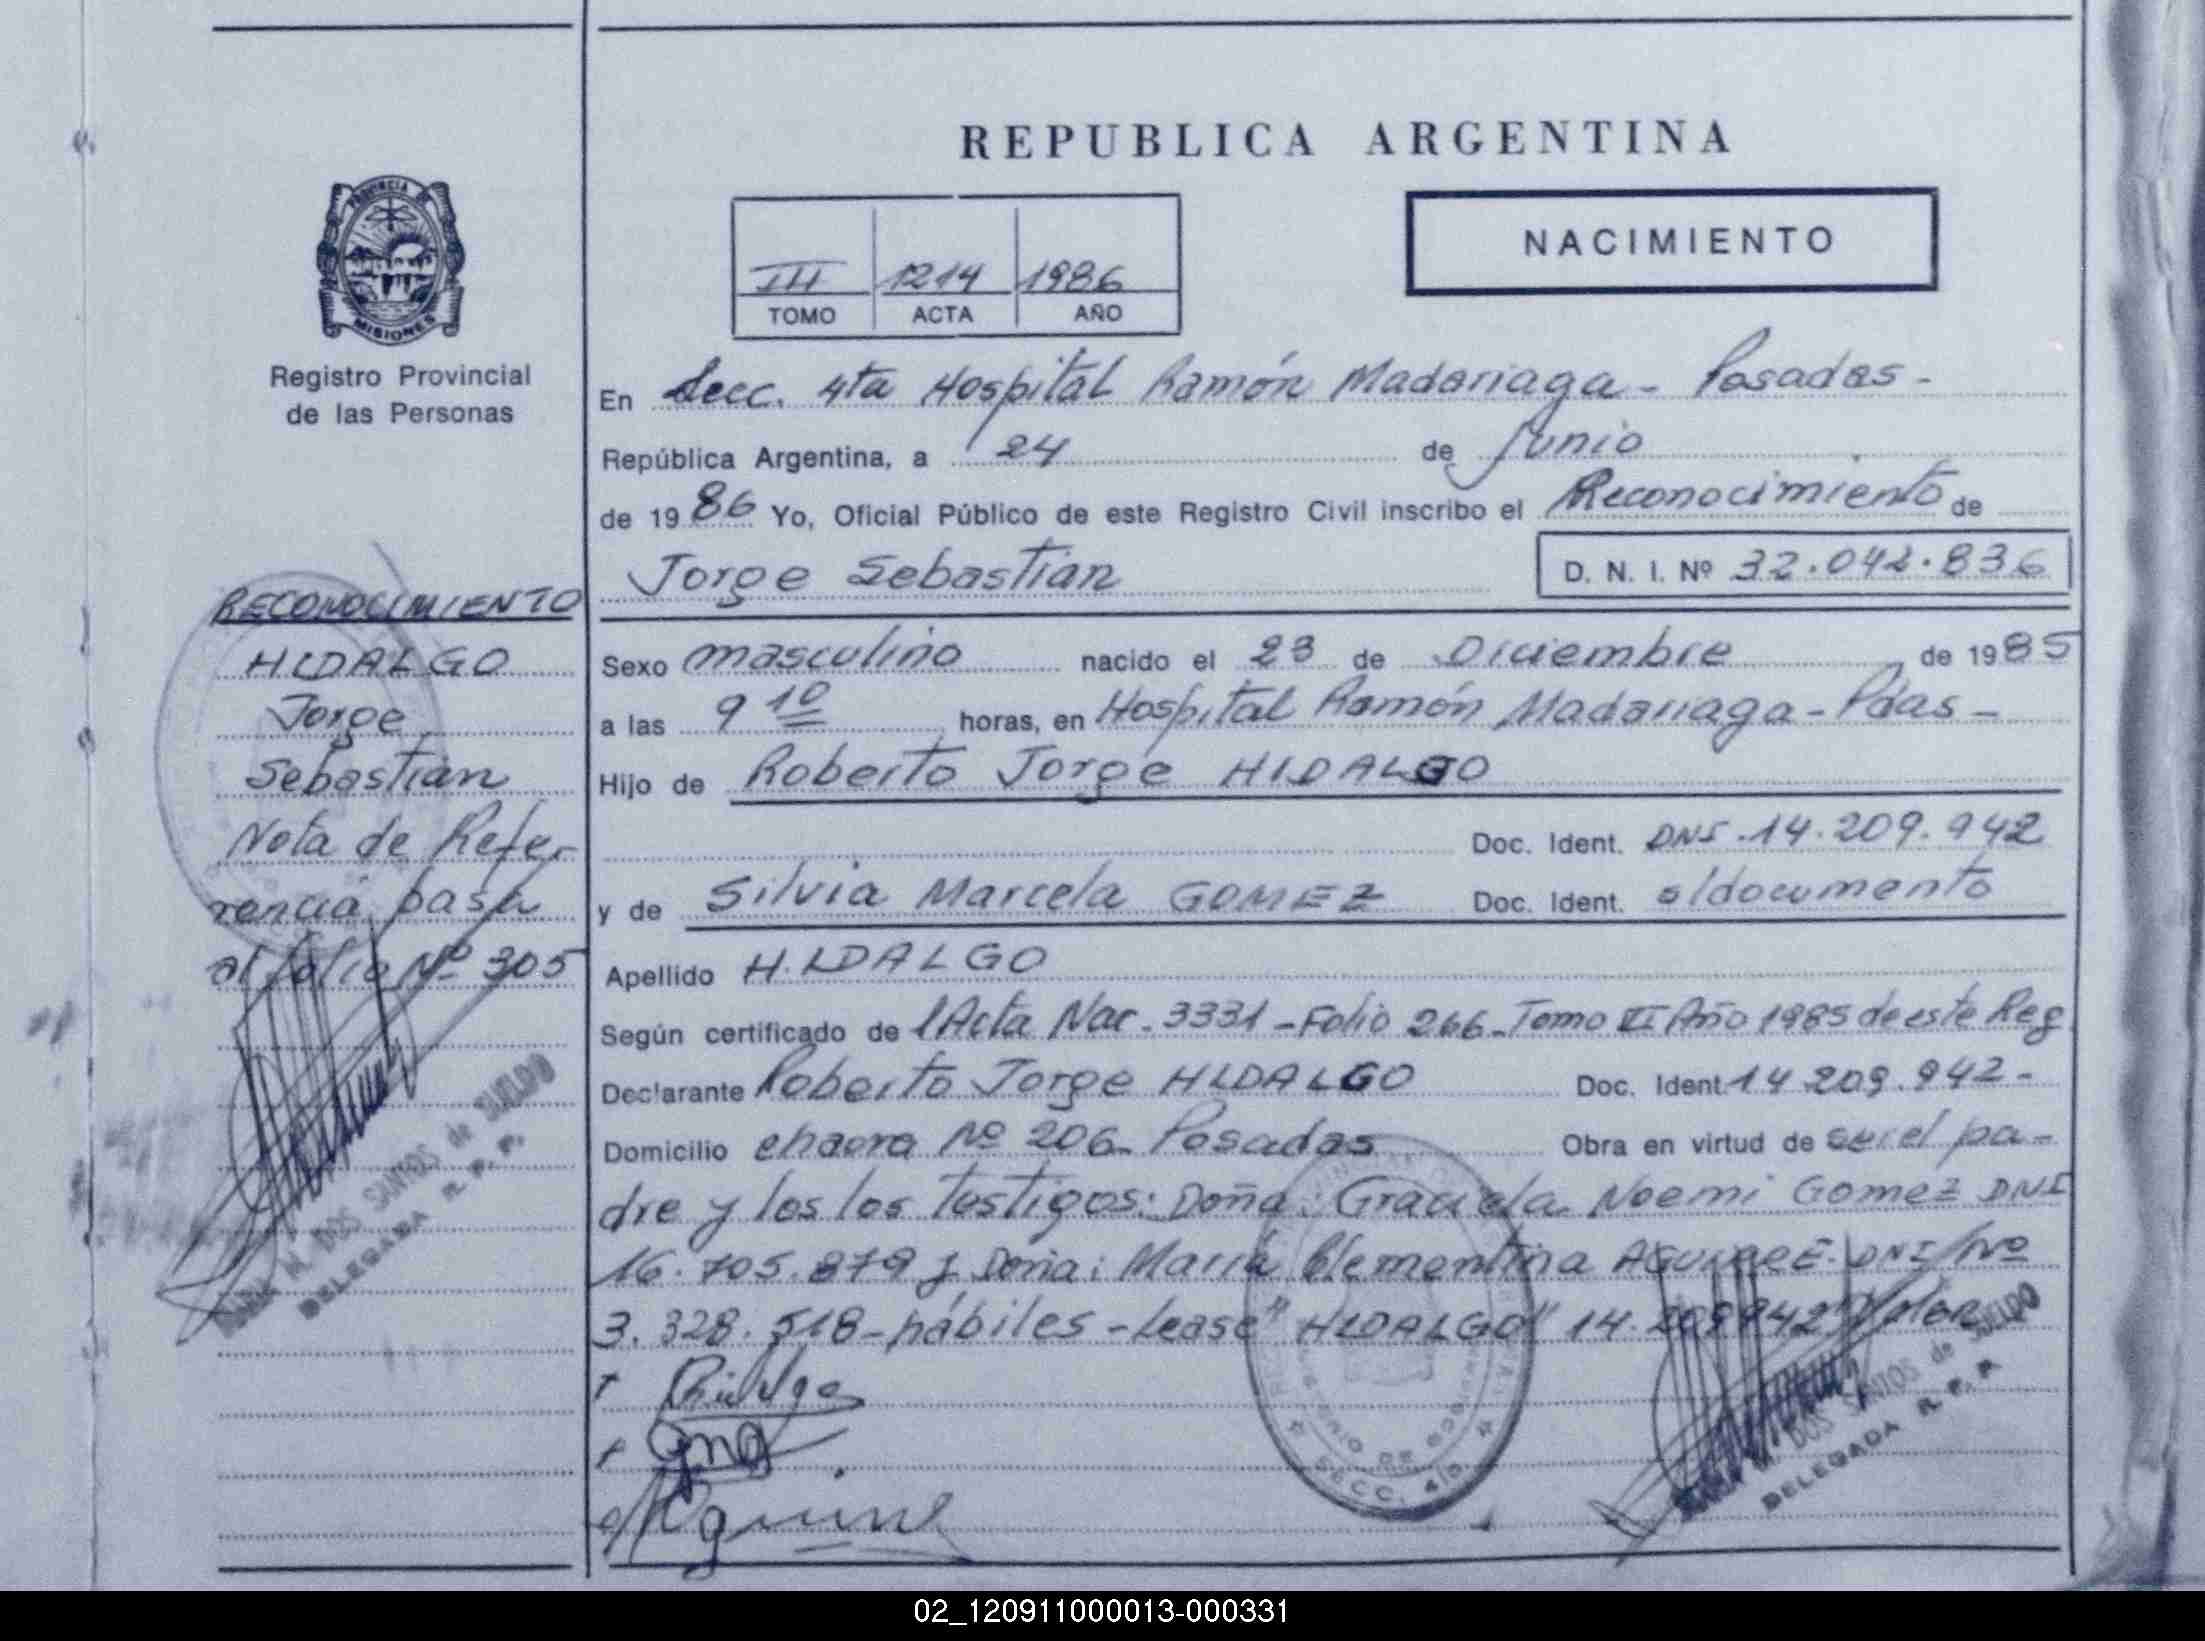 REPUBLICA ARGENTINA
NACIMIENTO
III 1214 1986
TOMO ACTA AÑO
PROVINCIA DE
MISIONES
Registro Provincial
de las Personas
En Secc. 4ta Hospital Ramón Madariaga - Posadas -
República Argentina, a 24 de Junio
de 1986 Yo, Oficial Público de este Registro Civil inscribo el Reconocimiento de
Jorge Sebastian D. N. I. Nº 32.042.836
Sexo masculino nacido el 23 de Diciembre de 1985
a las 9 10 horas, en Hospital Ramón Madariaga - Pdas -
Hijo de Roberto Jorge HIDALGO
Doc. Ident. DNI. 14.209.942
y de Silvia Marcela GOMEZ Doc. Ident. s/documento
Apellido HIDALGO
Según certificado de l Acta Nac. 3331 - Folio 266 - Tomo Año 1985 de este Reg
Declarante Roberto Jorge HIDALGO Doc. Ident. 14.209.942 -
Domicilio chacra Nº 206 - Posadas Obra en virtud de ser el pa-
dre y los los testigos: Doña: Graciela Noemi Gomez DNI
16.705.879 y Doña: María Clementina AGUIRRE. DNI Nº
3.328.518 - hábiles - Lease "HIDALGO" 14.209942" Valen
RECONOCIMIENTO
HIDALGO
Jorge
Sebastian
Nota de Refe-
rencia pasa
al folio Nº 305
M. DOS SANTOS de SUELDO
DELEGADA R. P. P.
SECC. 4ta.
M. DOS SANTOS de SUELDO
DELEGADA R. P. P.
02_120911000013-000331